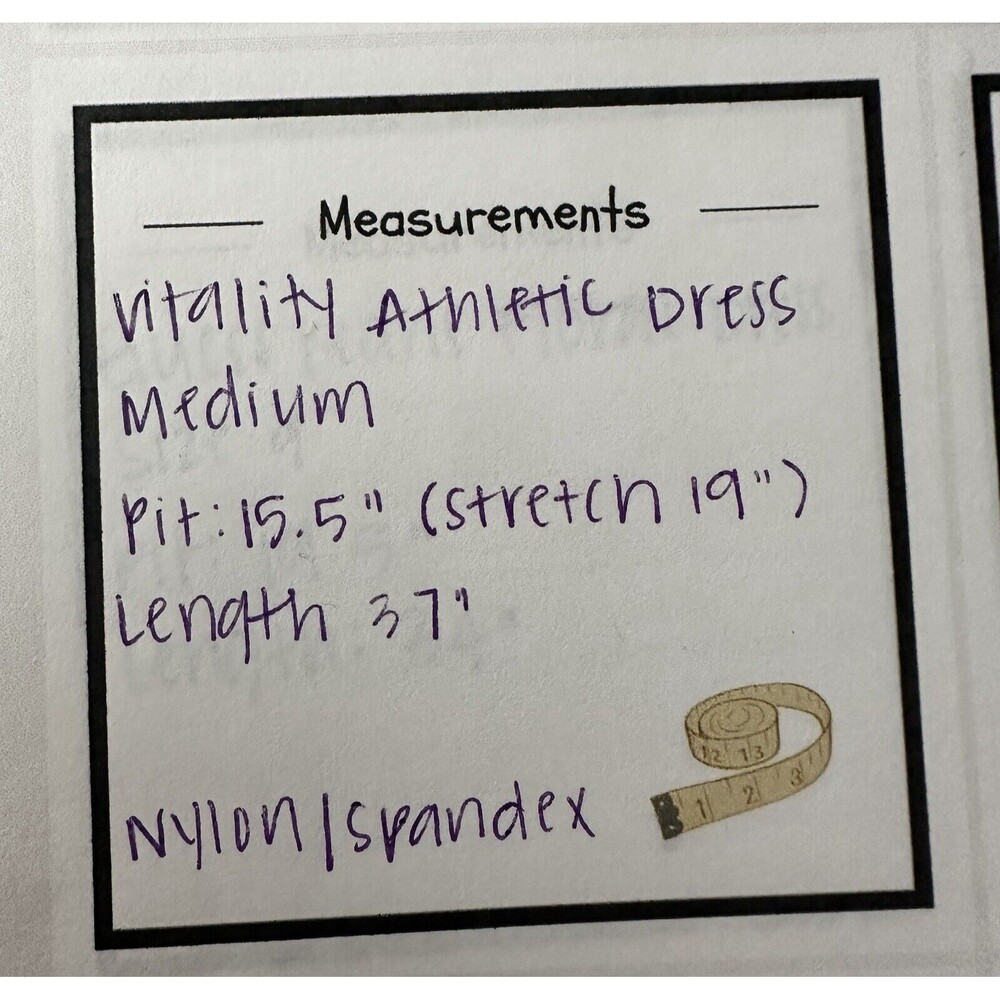 Measurements
Vitality Athletic Dress
Medium
Pit: 15.5" (stretch 19")
Length 37"
Nylon/Spandex
12 13
1 2 3